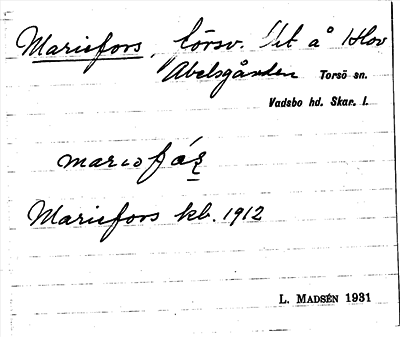 Mariefors, törsv. Set å Hov
Abelsgården Torsö sn.
Vadsbo hd. Skar. l.
Mariefors kb. 1912
L. MADSÉN 1931